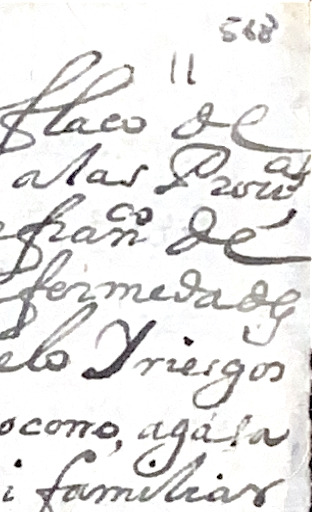 568
11
flaco de
alas Prouas
franco de
fermedades
elo Y riesgos
ocorro, aga la
i familiar